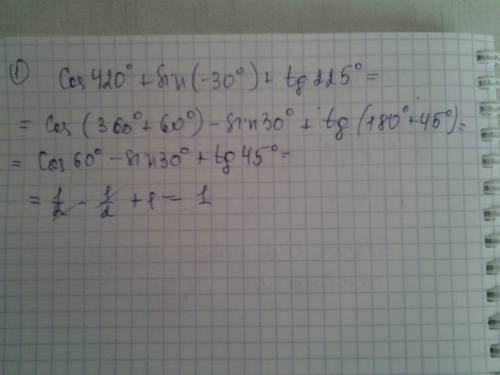 ① Cos 420° + sin (-30°) + tg 225° =
= Cos (360° + 60°) - sin 30° + tg (180° + 45°) =
= Cos 60° - sin 30° + tg 45° =
= 1/2 - 1/2 + 1 = 1